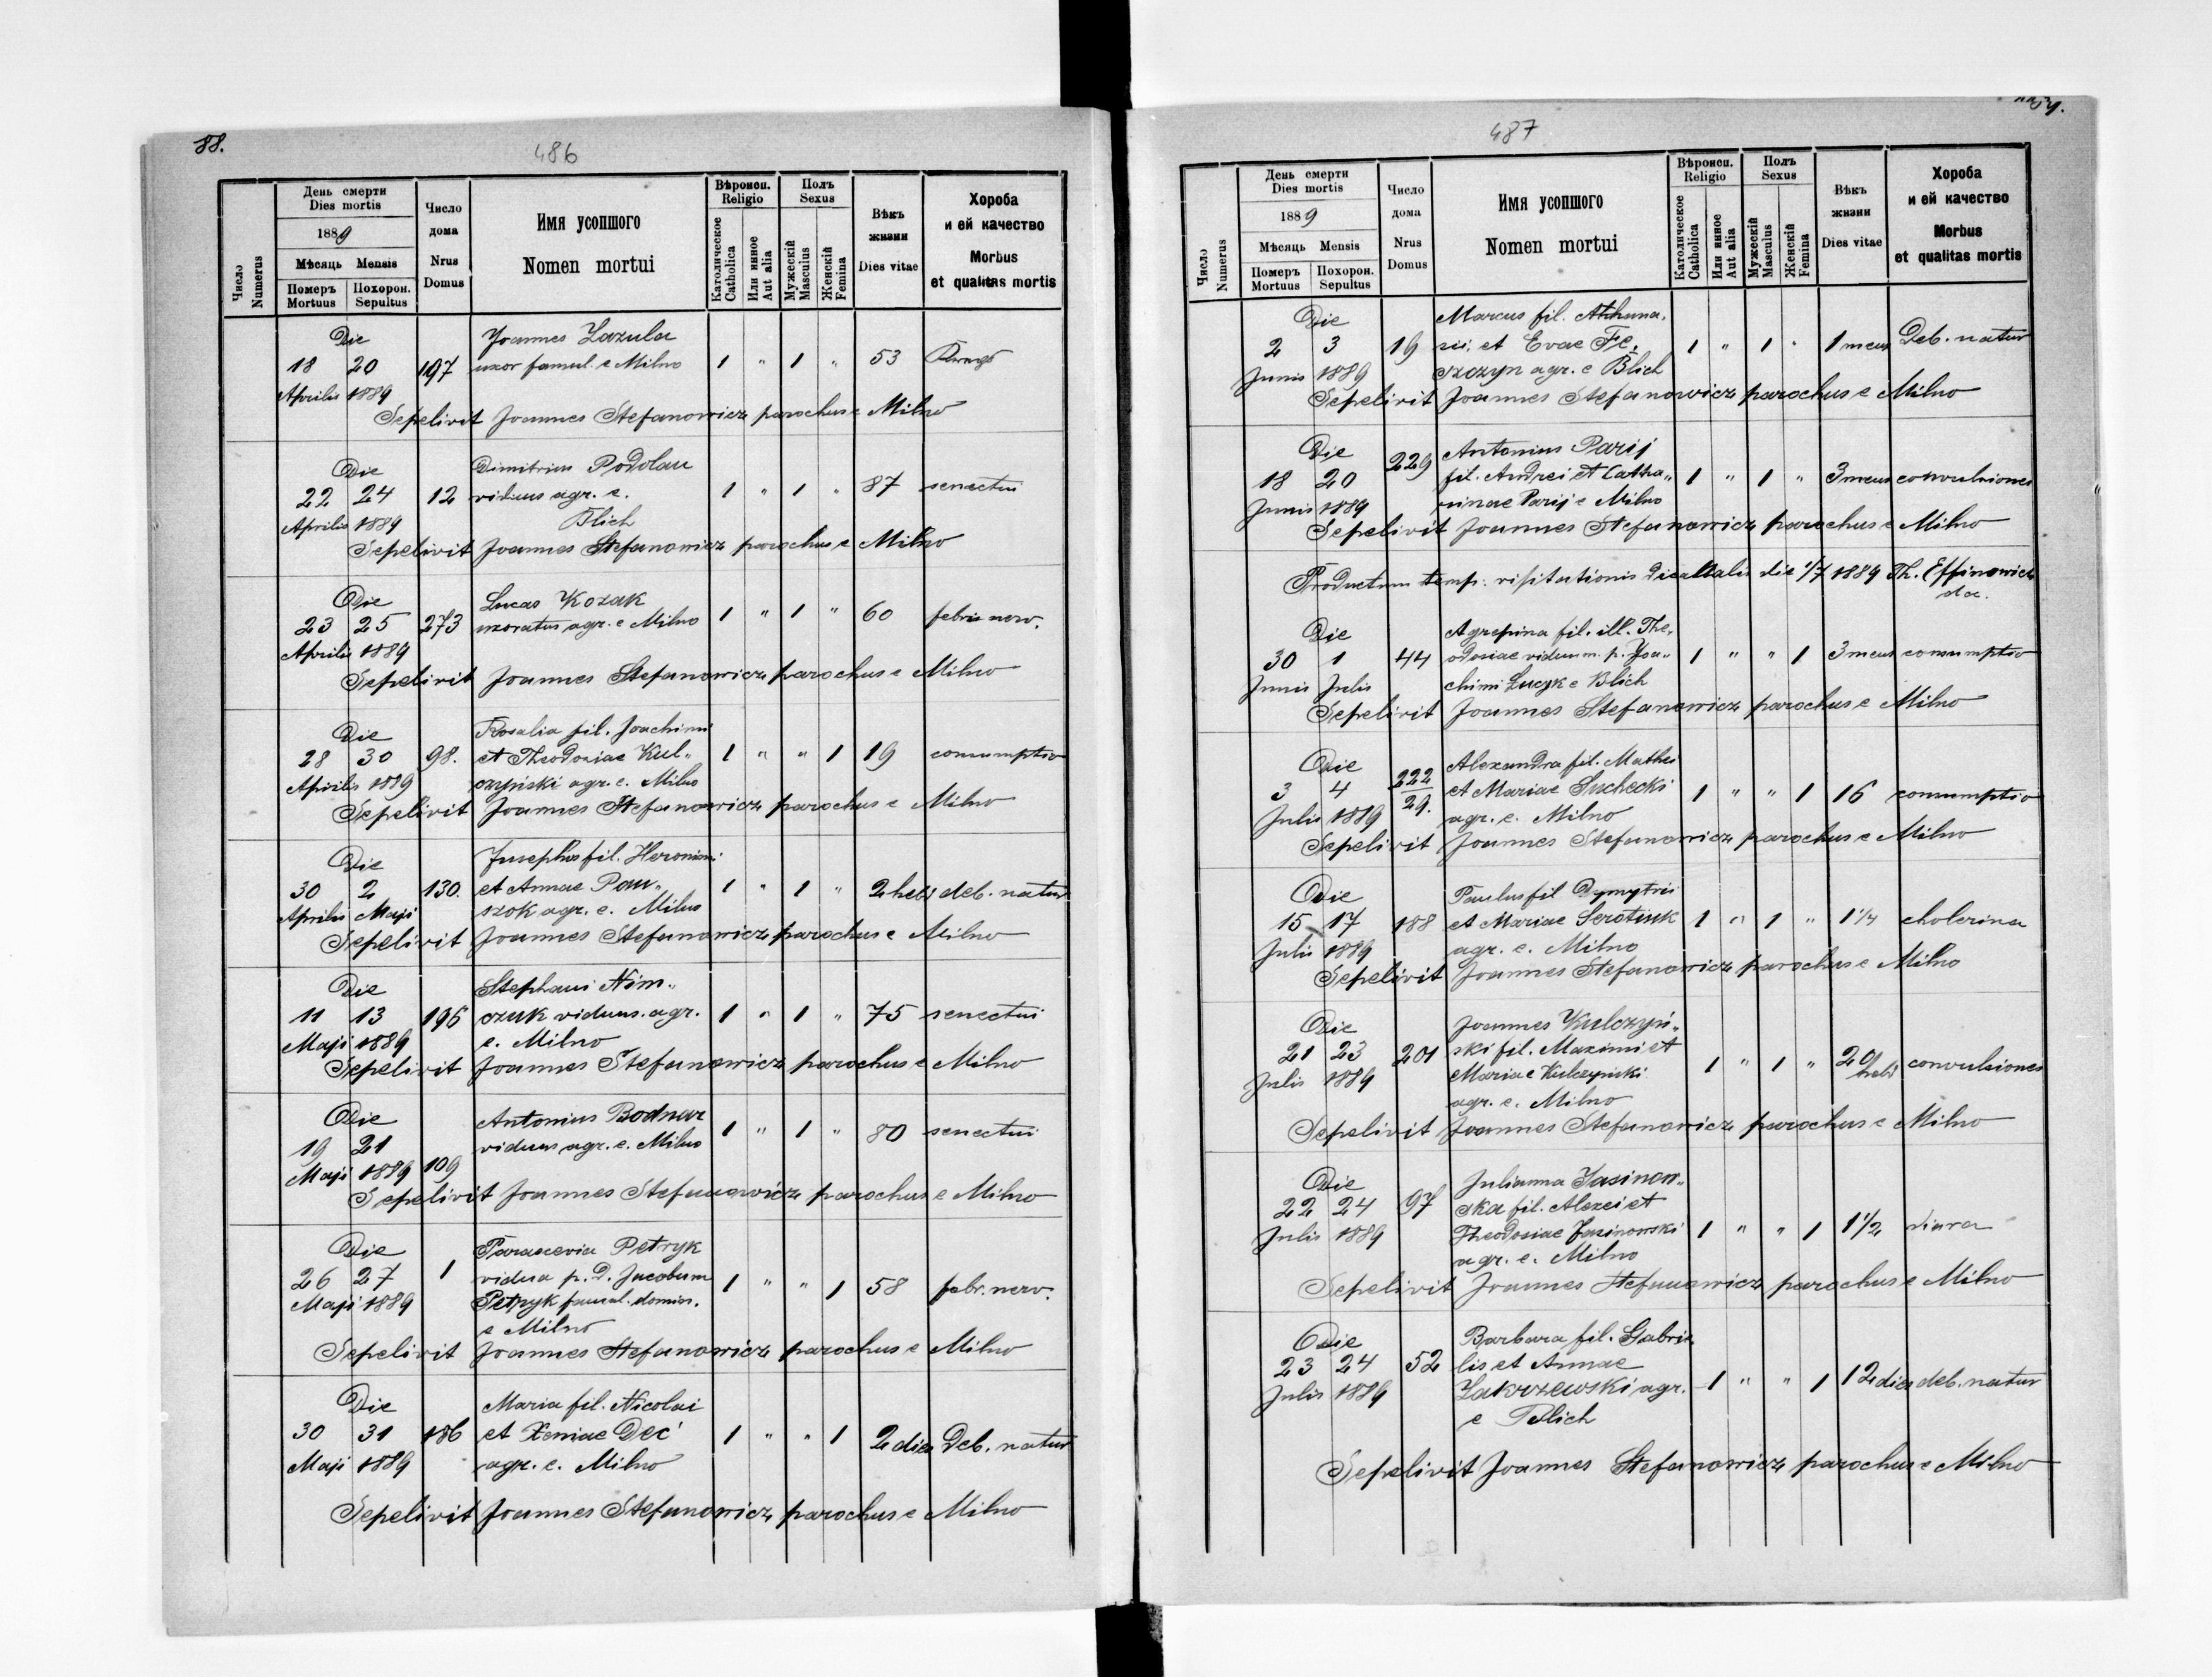 88.
486
Число Numerus
День смерти
Dies mortis
1889
Мѣсяць Mensis
Померъ Mortuus
Похорон. Sepultus
Число дома
Nrus Domus
Имя усопшого
Nomen mortui
Вѣроисп.
Religio
Католическое Catholica
Или инное Aut alia
Полъ
Sexus
Мужескій Masculus
Женскій Femina
Вѣкъ жизни
Dies vitae
Хороба
и ей качество
Morbus
et qualitas mortis
Die
Joannes Zazula
18 20 197 uxor famul. e Milno 1 " 1 " 53
Aprilis 1889
Sepelivit Joannes Stefanowicz parochus e Milno
Die
Dimitrius Podolan
22 24 12 viduus agr. e. 1 " 1 " 87 senectui
Aprilis 1889 Blich
Sepelivit Joannes Stefanowicz parochus e Milno
Die
Lucas Kozak
23 25 273 uxoratus agr. e Milno 1 " 1 " 60 febris nerv.
Aprilis 1889
Sepelivit Joannes Stefanowicz parochus e Milno
Die
Rosalia fil. Joachimi
28 30 98. et Theodosiae Kul„ 1 " " 1 19 consumptio
Aprilis 1889 czyński agr. e. Milno
Sepelivit Joannes Stefanowicz parochus e Milno
Die
Josephus fil. Heronimi
30 2 130. et Annae Pan„ 1 " 1 " 2 hebd deb. natur
Aprilis Maji szok agr. e. Milno
Sepelivit Joannes Stefanowicz parochus e Milno
Die
Stephani Nim„
11 13 196 czuk viduus. agr. 1 " 1 " 75 senectui
Maji 1889 e. Milno
Sepelivit Joannes Stefanowicz parochus e Milno
Die
Antonius Bodnar
19 21 viduus agr. e. Milno 1 " 1 " 80 senectui
Maji 1889 109
Sepelivit Joannes Stefanowicz parochus e Milno
Die
Parascevia Petryk
26 27 1 vidua p. D. Jacobum 1 " " 1 58 febr. nerv.
Maji 1889 Petryk famul. domin.
e Milno
Sepelivit Joannes Stefanowicz parochus e Milno
Die
Maria fil. Nicolai
30 31 186 et Xeniae Deć 1 " " 1 2 dies Deb. natur
Maji 1889 agr. e. Milno
Sepelivit Joannes Stefanowicz parochus e Milno
487
Число Numerus
День смерти
Dies mortis
1889
Мѣсяць Mensis
Померъ Mortuus
Похорон. Sepultus
Число дома
Nrus Domus
Имя усопшого
Nomen mortui
Вѣроисп.
Religio
Католическое Catholica
Или инное Aut alia
Полъ
Sexus
Мужескій Masculus
Женскій Femina
Вѣкъ жизни
Dies vitae
Хороба
и ей качество
Morbus
et qualitas mortis
Die
Marcus fil. Athana„
2 3 19 sii, et Evae Fe„ 1 " 1 " 1 mens Deb. natur
Junii 1889 szczyn agr. e Blich
Sepelivit Joannes Stefanowicz parochus e Milno
Die 229 Antonius Parij
18 20 fil. Andrei et Catha„ 1 " 1 " 3 mens convulsiones
Junii 1889 rinae Parij e Milno
Sepelivit Joannes Stefanowicz parochus e Milno
Productum temp. visitationis decanalis die 1/7 1889 Th. Effinowicz
Die
Agrepina fil. ill. The„
30 1 44 odosiae viduam. p. Joa„ 1 " " 1 3 mens consumptio
Junii Julii chimi Lucyk e Blich
Sepelivit Joannes Stefanowicz parochus e Milno
Die 222/29. Alexandra fil. Mathei
3 4 et Mariae Suchecki 1 " " 1 16 consumptio
Julii 1889 agr. e. Milno
Sepelivit Joannes Stefanowicz parochus e Milno
Die
Paulus fil Dymytrii
15 17 188 et Mariae Serotiuk 1 " 1 " 1 1/4 cholerina
Julii 1889 agr. e. Milno
Sepelivit Joannes Stefanowicz parochus e Milno
Die
Joannes Kulczyń„
21 23 201 ski fil. Maximi et
Julii 1889 Mariae Kulczyński 1 " 1 " 20 hebd convulsiones
agr. e. Milno
Sepelivit Joannes Stefanowicz parochus e Milno
Die
Julianna Jasinow„
22 24 97 ska fil. Alexei et
Julii 1889 Theodosiae Jasinowski 1 " " 1 1 1/2 diara
agr. e. Milno
Sepelivit Joannes Stefanowicz parochus e Milno
Die
Barbara fil. Gabrie„
23 24 52 lis et Annae
Julii 1889 Zakrzewski agr. 1 " " 1 12 dies deb. natur
e Blich
Sepelivit Joannes Stefanowicz parochus e Milno